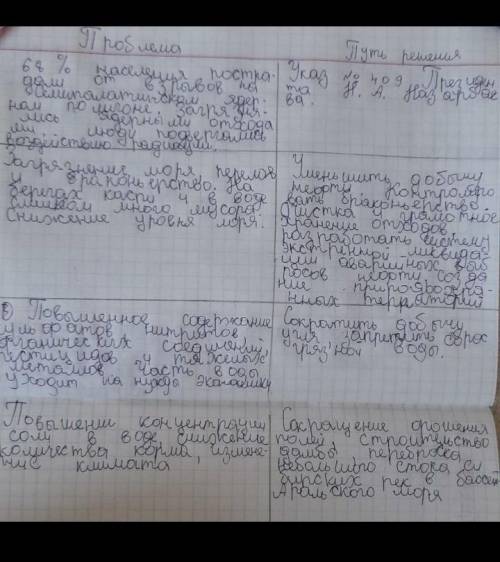 Проблема
Путь решения
68 % населения постра-
дали от взрывов на
Семипалатинском ядер-
ном полигоне. Загрязня-
лись ядерными отхода
ми люди подвергались
воздействию радиации.
Указ № 409 Президен
та Н. А. Назарбае
ва.
Загрязнение моря перелов
и браконьерство. На
берегах каспия и в воде
слишком много мусора.
Снижение уровня моря.
Уменьшить добычу
нефти контролиро
вать браконьерство.
Очистка и грамотное
хранение отходов,
разработать систему
экстренной ликвида-
ции аварийных выб
росов нефти созда
ние природоохра-
нных территорий
Повышенное содержание
сульфатов нитритов
органических соединений,
пестицидов и тяжелых
металлов часть воды
уходит на нужды экономики
Сократить добычу
угля запретить сброс
грязной воды.
Повышении концентрации
соли в воде, снижение
количества корма, измене-
ние климата
Сокращение орошения
полей, строительство
дамбы переброска
небольшого стока си
бирских рек в бассейн
Аральского моря